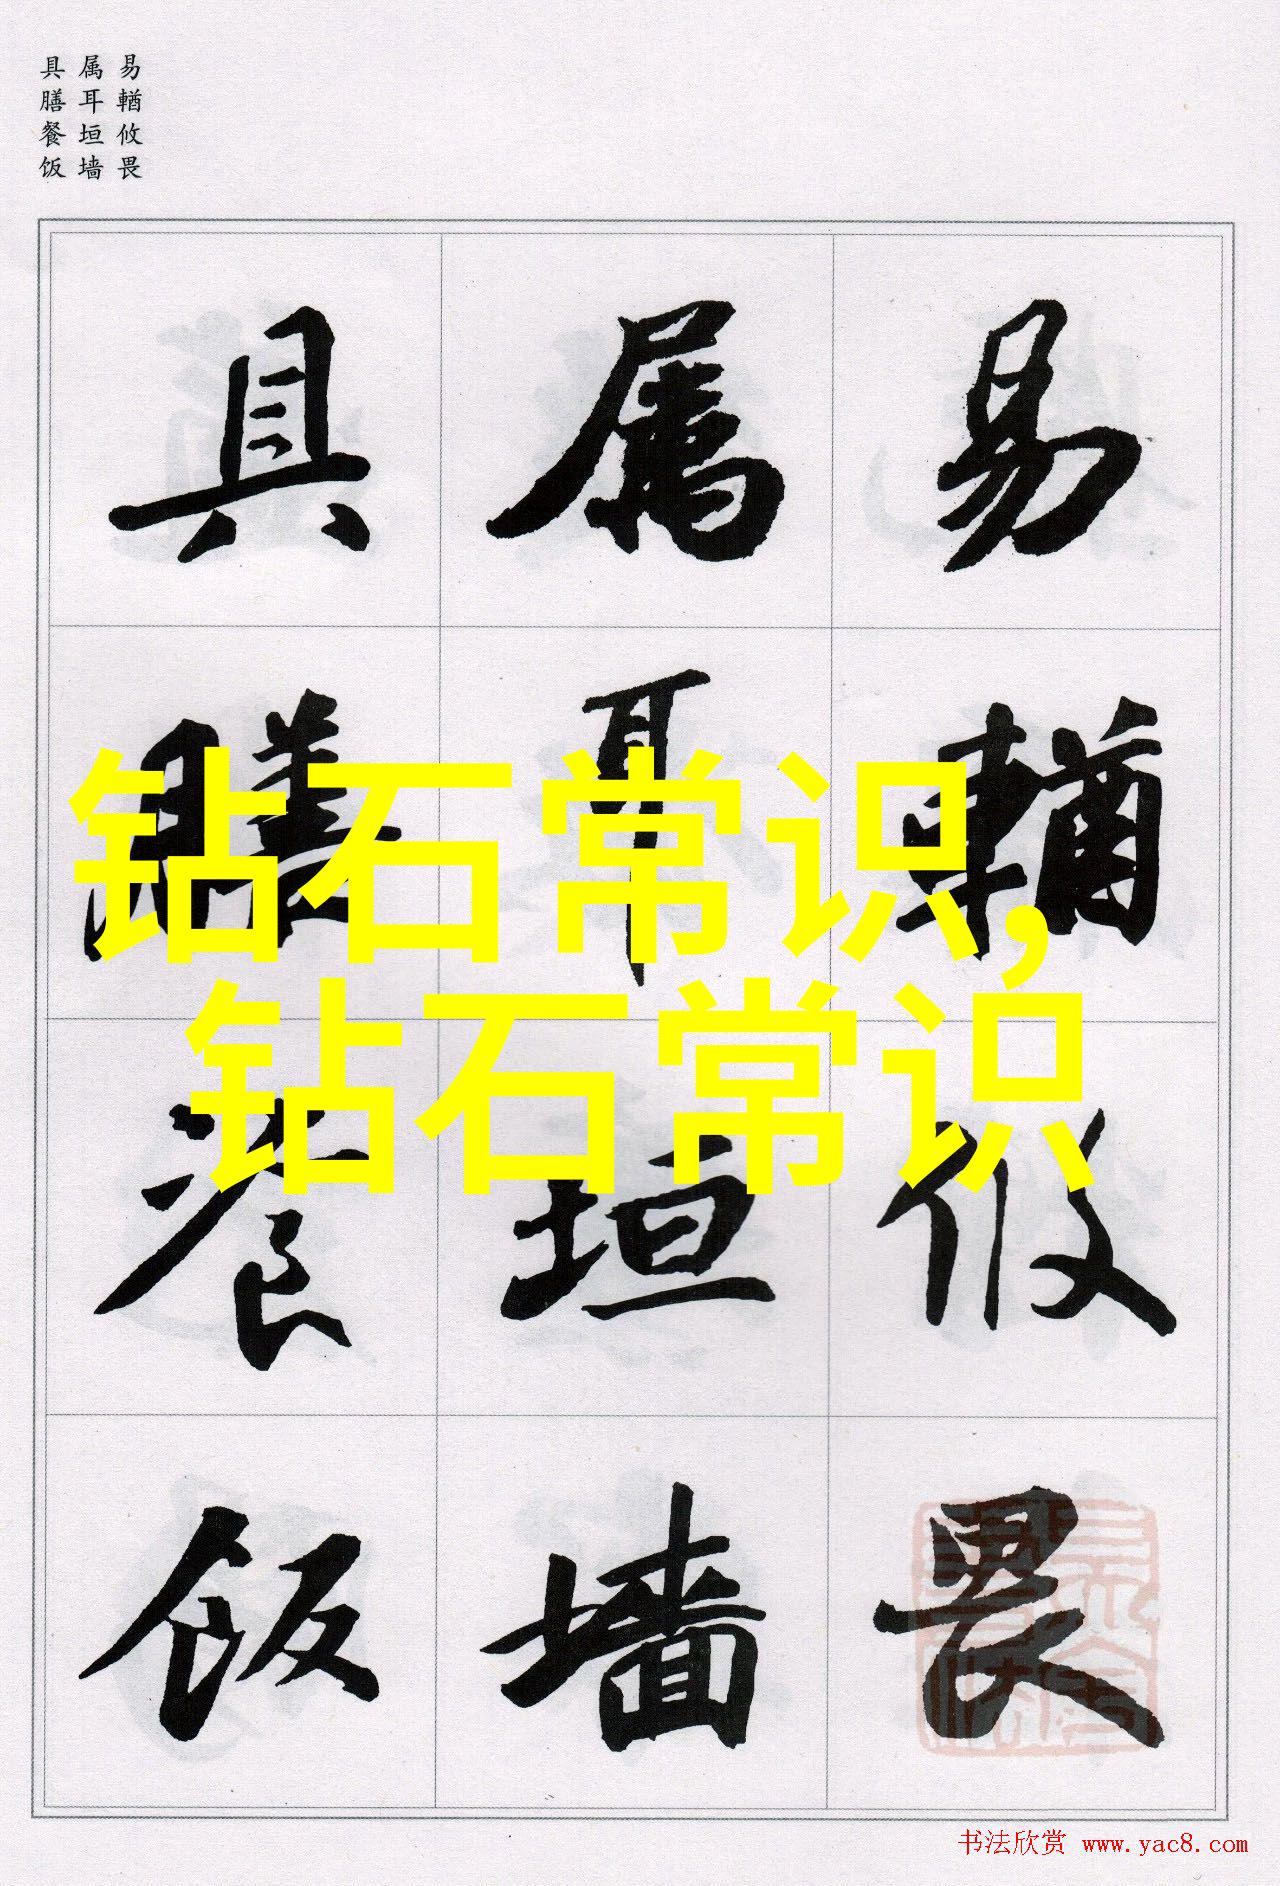 易輶攸畏
属耳垣墙
具膳餐饭
易輶攸畏
属耳垣墙
具膳餐饭
钻石常识,
钻石常识
书法欣赏 www.yac8.com